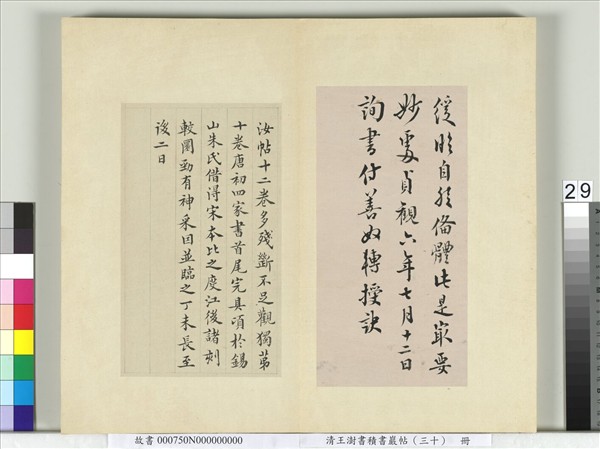 緩臨自然備體此是最要
妙處貞觀六年七月十二日
詢書付善奴轉授訣
汝帖十二卷多殘斷不足觀獨第
十卷唐初四家書首尾完具頃於錫
山朱氏借得宋本比之度江後諸刻
較圓勁有神采因並臨之丁未長至
後二日
29
故書 000750N000000000
清王澍書積書巖帖(三十) 冊